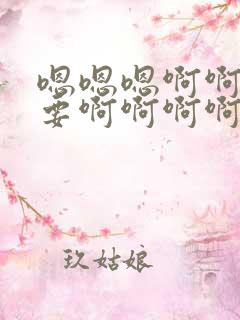 嗯嗯嗯啊啊
要啊啊啊啊
玖姑娘